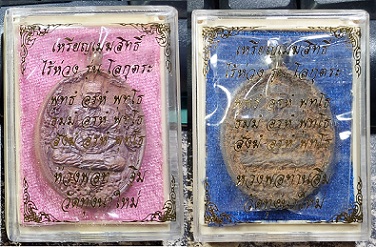 เหรียญเม็ดสิทธิ์
ไร้ห่วง รุ่น โลกุตระ
พุทธํ อรหํ พุทโธ
ธมฺมํ อรหํ พุทโธ
สังฆํ อรหํ พุทโธ
หลวงพ่อ
วัดทุ่ง ใหม่
เหรียญเม็ดสิทธิ์
ไร้ห่วง รุ่น โลกุตระ
พุทธํ อรหํ พุทโธ
ธมฺมํ อรหํ พุทโธ
สังฆํ อรหํ พุทโธ
หลวงพ่อ
วัดทุ่ง ใหม่